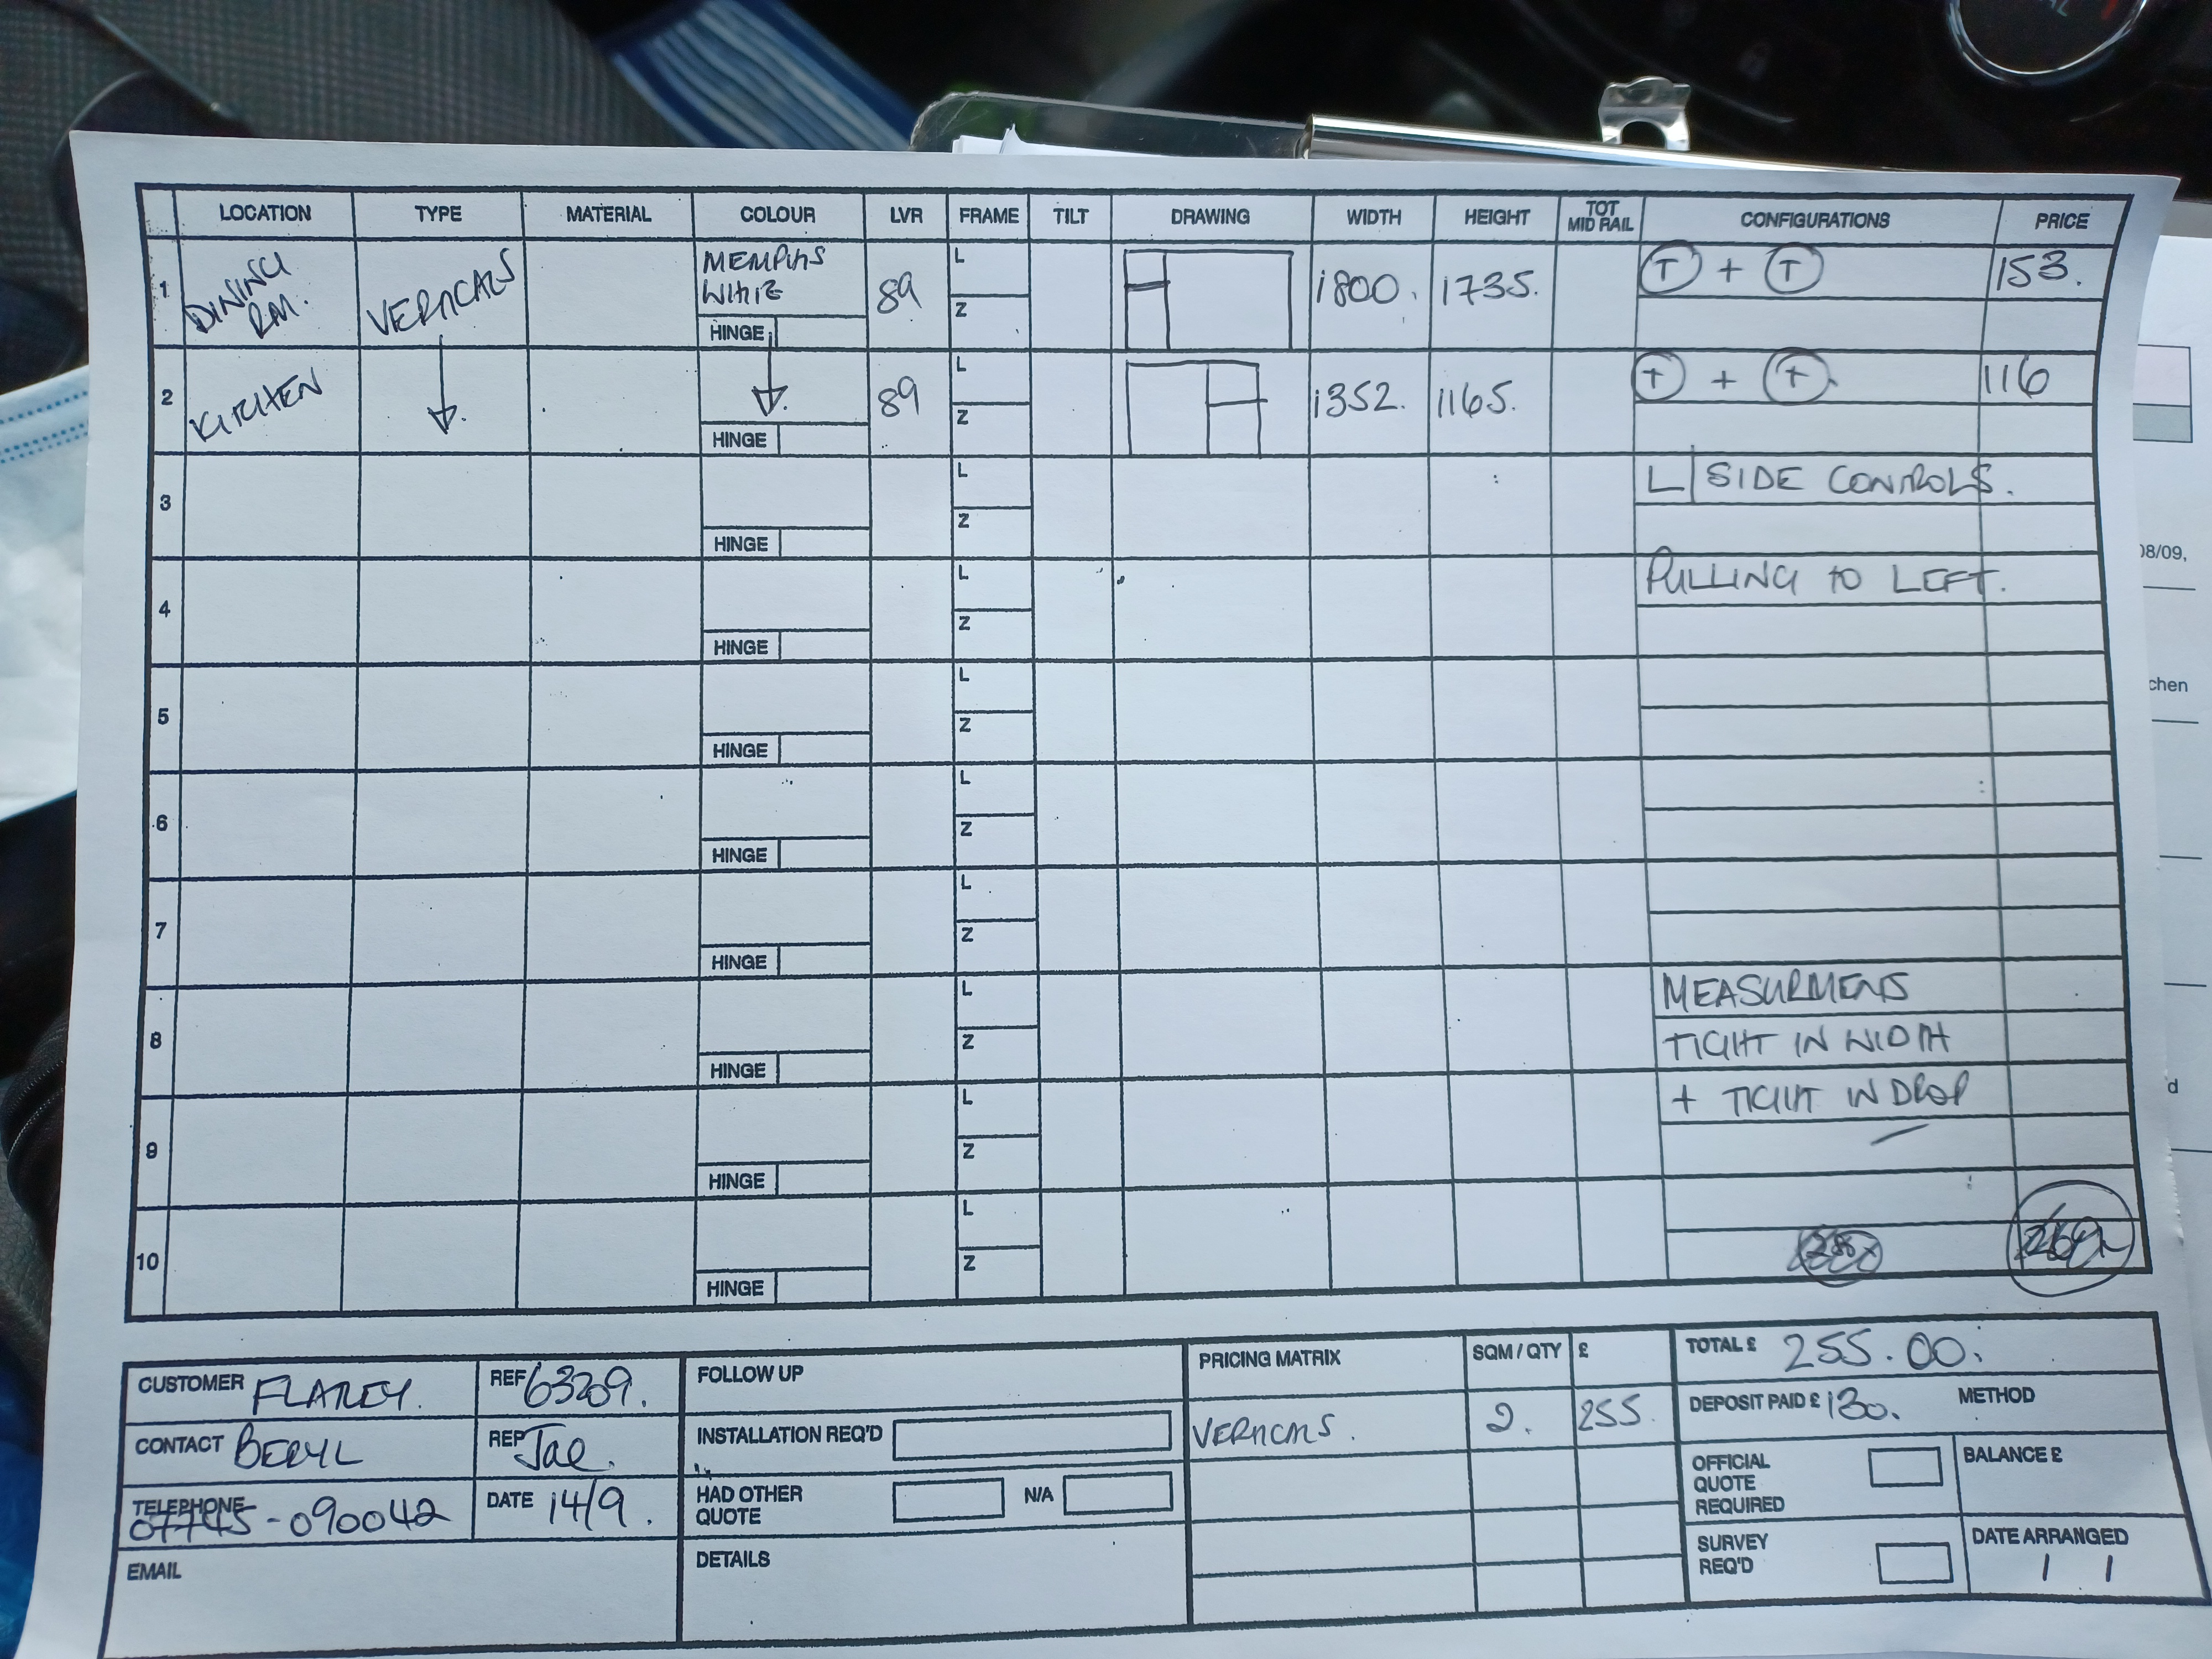 LOCATION TYPE MATERIAL COLOUR LVR FRAME TILT DRAWING WIDTH HEIGHT TOT MID RAIL CONFIGURATIONS PRICE
1 DINING RM. VERTICALS MEMPHIS WHITE HINGE 89 L Z 1800. 1735. T + T 153.
2 KITCHEN HINGE 89 L Z 1352. 1165. T + T. 116
3 HINGE L Z L SIDE CONTROLS.
4 HINGE L Z PULLING TO LEFT.
5 HINGE L Z
6 HINGE L Z
7 HINGE L Z
8 HINGE L Z MEASURMENTS
TIGHT IN WIDTH
9 HINGE L Z + TIGHT IN DROP
10 HINGE L Z
CUSTOMER FLATLEY. REF 63209.
CONTACT BERYL REP Jae.
TELEPHONE 07745-090042 DATE 14/9.
EMAIL
FOLLOW UP
INSTALLATION REQ'D
HAD OTHER QUOTE N/A
DETAILS
PRICING MATRIX SQM / QTY £
VERTICALS. 2. 255.
TOTAL £ 255.00.
DEPOSIT PAID £ 130. METHOD
OFFICIAL QUOTE REQUIRED BALANCE £
SURVEY REQ'D DATE ARRANGED / /
08/09,
chen
d